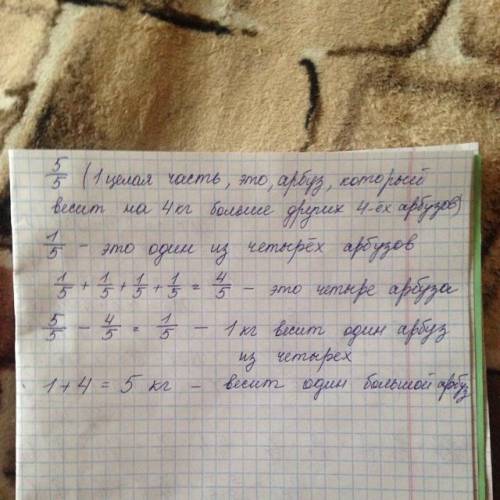 5/5 (1 целая часть, это, арбуз, который
весит на 4 кг больше других 4-ёх арбузов)
1/5 - это один из четырёх арбузов
1/5 + 1/5 + 1/5 + 1/5 = 4/5 - это четыре арбуза
5/5 - 4/5 = 1/5 - 1 кг весит один арбуз
из четырех
1 + 4 = 5 кг - весит один большой арбуз